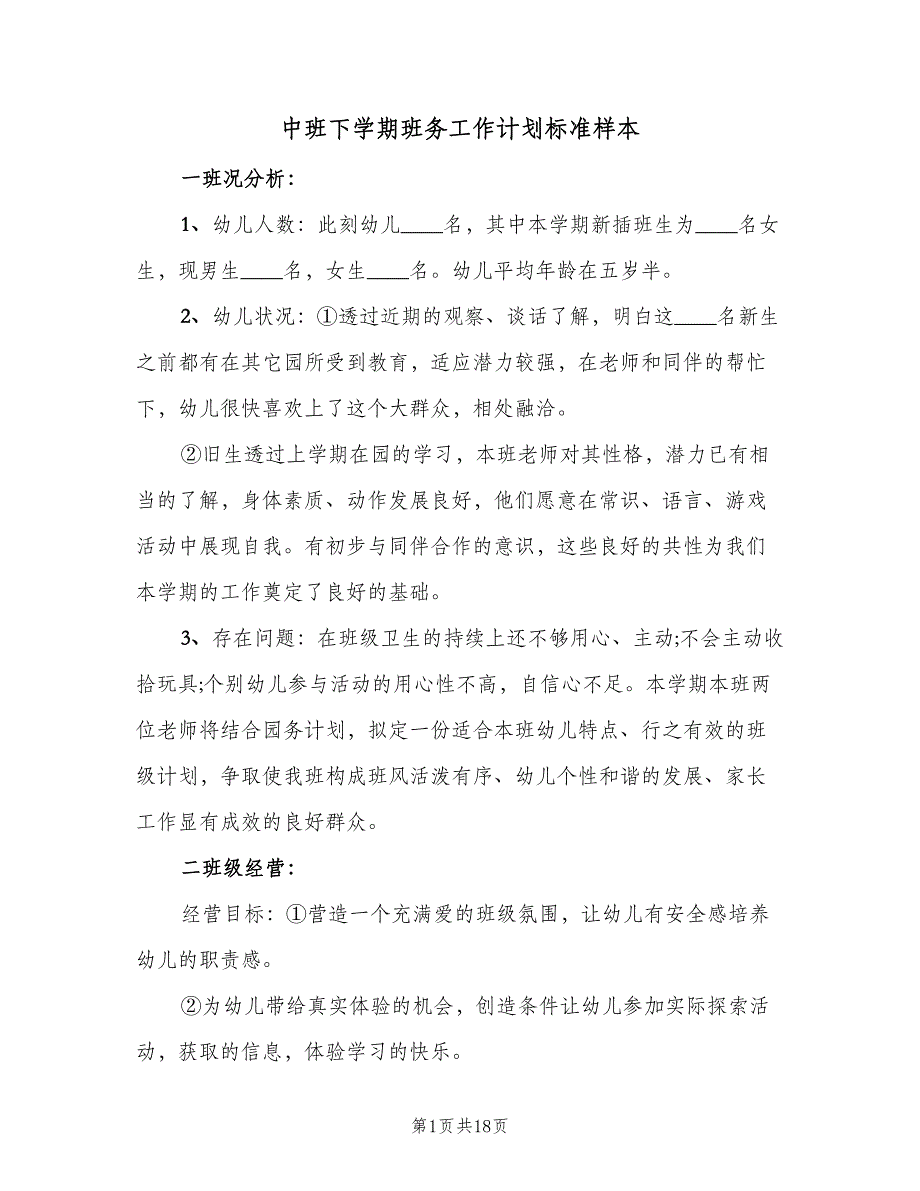 中班下学期班务工作计划标准样本
一班况分析：
1、幼儿人数：此刻幼儿____名，其中本学期新插班生为____名女
生，现男生____名，女生____名。幼儿平均年龄在五岁半。
2、幼儿状况：①透过近期的观察、谈话了解，明白这____名新生
之前都有在其它园所受到教育，适应潜力较强，在老师和同伴的帮忙
下，幼儿很快喜欢上了这个大群众，相处融洽。
②旧生透过上学期在园的学习，本班老师对其性格，潜力已有相
当的了解，身体素质、动作发展良好，他们愿意在常识、语言、游戏
活动中展现自我。有初步与同伴合作的意识，这些良好的共性为我们
本学期的工作奠定了良好的基础。
3、存在问题：在班级卫生的持续上还不够用心、主动;不会主动收
拾玩具;个别幼儿参与活动的用心性不高，自信心不足。本学期本班两
位老师将结合园务计划，拟定一份适合本班幼儿特点、行之有效的班
级计划，争取使我班构成班风活泼有序、幼儿个性和谐的发展、家长
工作显有成效的良好群众。
二班级经营：
经营目标：①营造一个充满爱的班级氛围，让幼儿有安全感培养
幼儿的职责感。
②为幼儿带给真实体验的机会，创造条件让幼儿参加实际探索活
动，获取的信息，体验学习的快乐。
第1页共18页